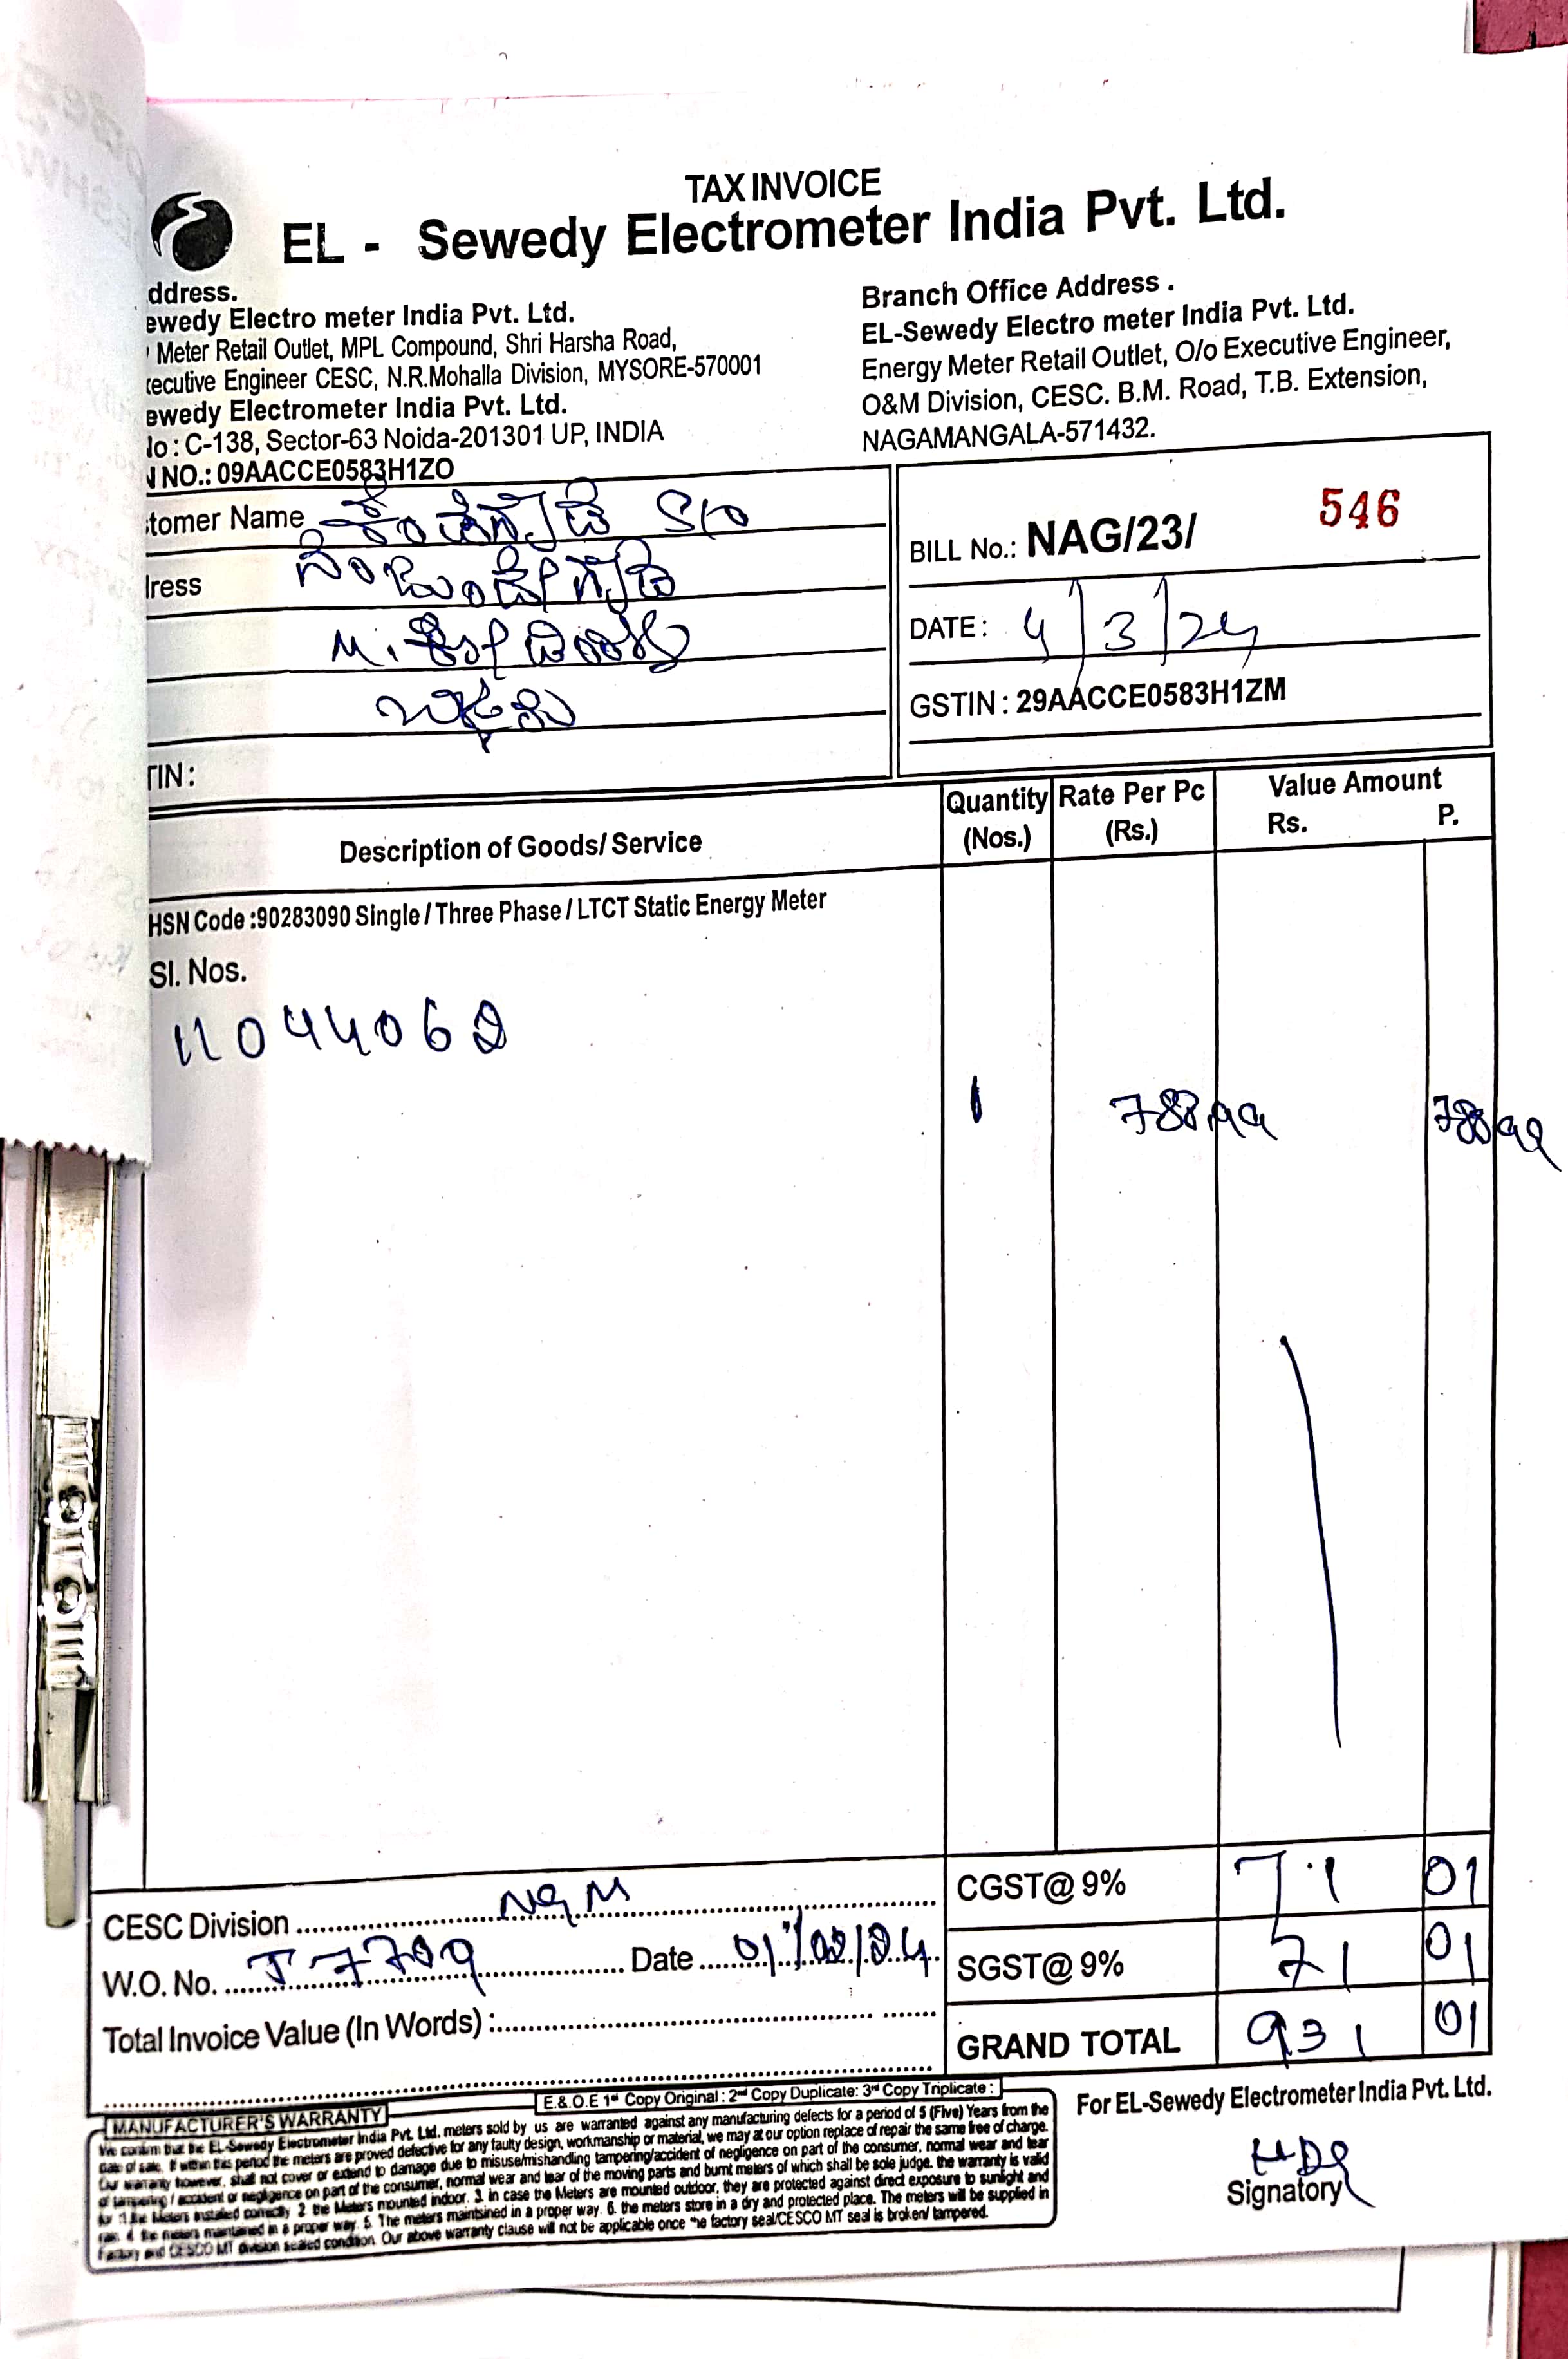 TAX INVOICE
EL - Sewedy Electrometer India Pvt. Ltd.
ddress.
ewedy Electro meter India Pvt. Ltd.
Meter Retail Outlet, MPL Compound, Shri Harsha Road,
ecutive Engineer CESC, N.R.Mohalla Division, MYSORE-570001
ewedy Electrometer India Pvt. Ltd.
No : C-138, Sector-63 Noida-201301 UP, INDIA
N NO.: 09AACCE0583H1ZO
Branch Office Address .
EL-Sewedy Electro meter India Pvt. Ltd.
Energy Meter Retail Outlet, O/o Executive Engineer,
O&M Division, CESC. B.M. Road, T.B. Extension,
NAGAMANGALA-571432.
tomer Name S/o
ress
M.
TIN :
BILL No.: NAG/23/ 546
DATE : 4/3/24
GSTIN : 29AACCE0583H1ZM
Description of Goods/ Service
Quantity (Nos.)
Rate Per Pc (Rs.)
Value Amount
Rs. P.
HSN Code :90283090 Single / Three Phase / LTCT Static Energy Meter
Sl. Nos.
11044062
1 788.99 788.99
CESC Division NGM
W.O. No. Date 01/02/24
Total Invoice Value (In Words) :
CGST@ 9% 71 01
SGST@ 9% 71 01
GRAND TOTAL 931 01
E.&.O.E 1st Copy Original : 2nd Copy Duplicate: 3rd Copy Triplicate :
MANUFACTURER'S WARRANTY
We confirm that the EL-Sewedy Electrometer India Pvt. Ltd. meters sold by us are warranted against any manufacturing defects for a period of 5 (Five) Years from the
date of sale. If within this period the meters are proved defective for any faulty design, workmanship or material, we may at our option replace of repair the same free of charge.
Our warranty however, shall not cover or extend to damage due to misuse/mishandling tampering/accident of negligence on part of the consumer, normal wear and tear
of tampering / accident or negligence on part of the consumer, normal wear and tear of the moving parts and burnt meters of which shall be sole judge. the warranty is valid
for 1 the Meters installed correctly 2 the Meters mounted indoor. 3. in case the Meters are mounted outdoor, they are protected against direct exposure to sunlight and
rain. 4 the meters maintained in a proper way. 5. The meters maintsined in a proper way. 6. the meters store in a dry and protected place. The meters will be supplied in
Factory and CESCO MT division sealed condition. Our above warranty clause will not be applicable once the factory seal/CESCO MT seal is broken/ tampered.
For EL-Sewedy Electrometer India Pvt. Ltd.
Signatory